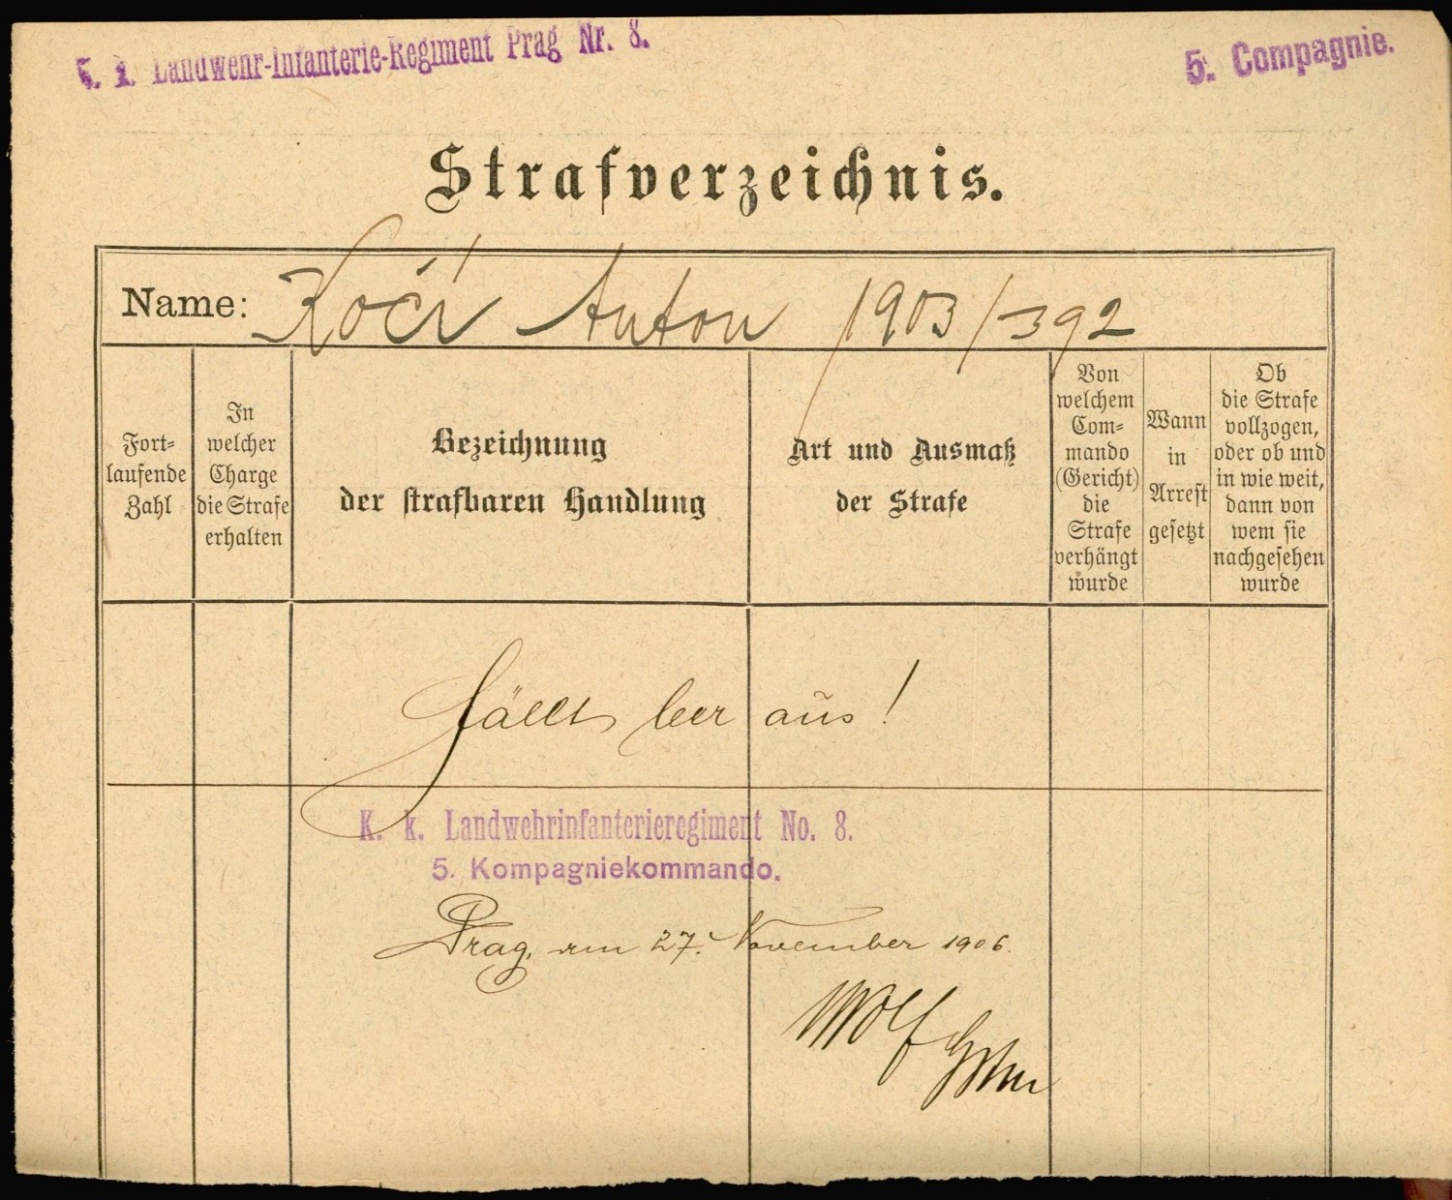 k. k. Landwehr-Infanterie-Regiment Prag Nr. 8.
5. Compagnie.
Strafverzeichnis.
Name: Kočí Anton 1903/392
Fort-
laufende
Zahl
In
welcher
Charge
die Strafe
erhalten
Bezeichnung
der strafbaren Handlung
Art und Ausmaß
der Strafe
Von
welchem
Com-
mando
(Gericht)
die
Strafe
verhängt
wurde
Wann
in
Arrest
gesetzt
Ob
die Strafe
vollzogen,
oder ob und
in wie weit,
dann von
wem sie
nachgesehen
wurde
fällt leer aus!
K. k. Landwehrinfanterieregiment No. 8.
5. Kompagniekommando.
Prag, am 27. November 1906.
Wolf